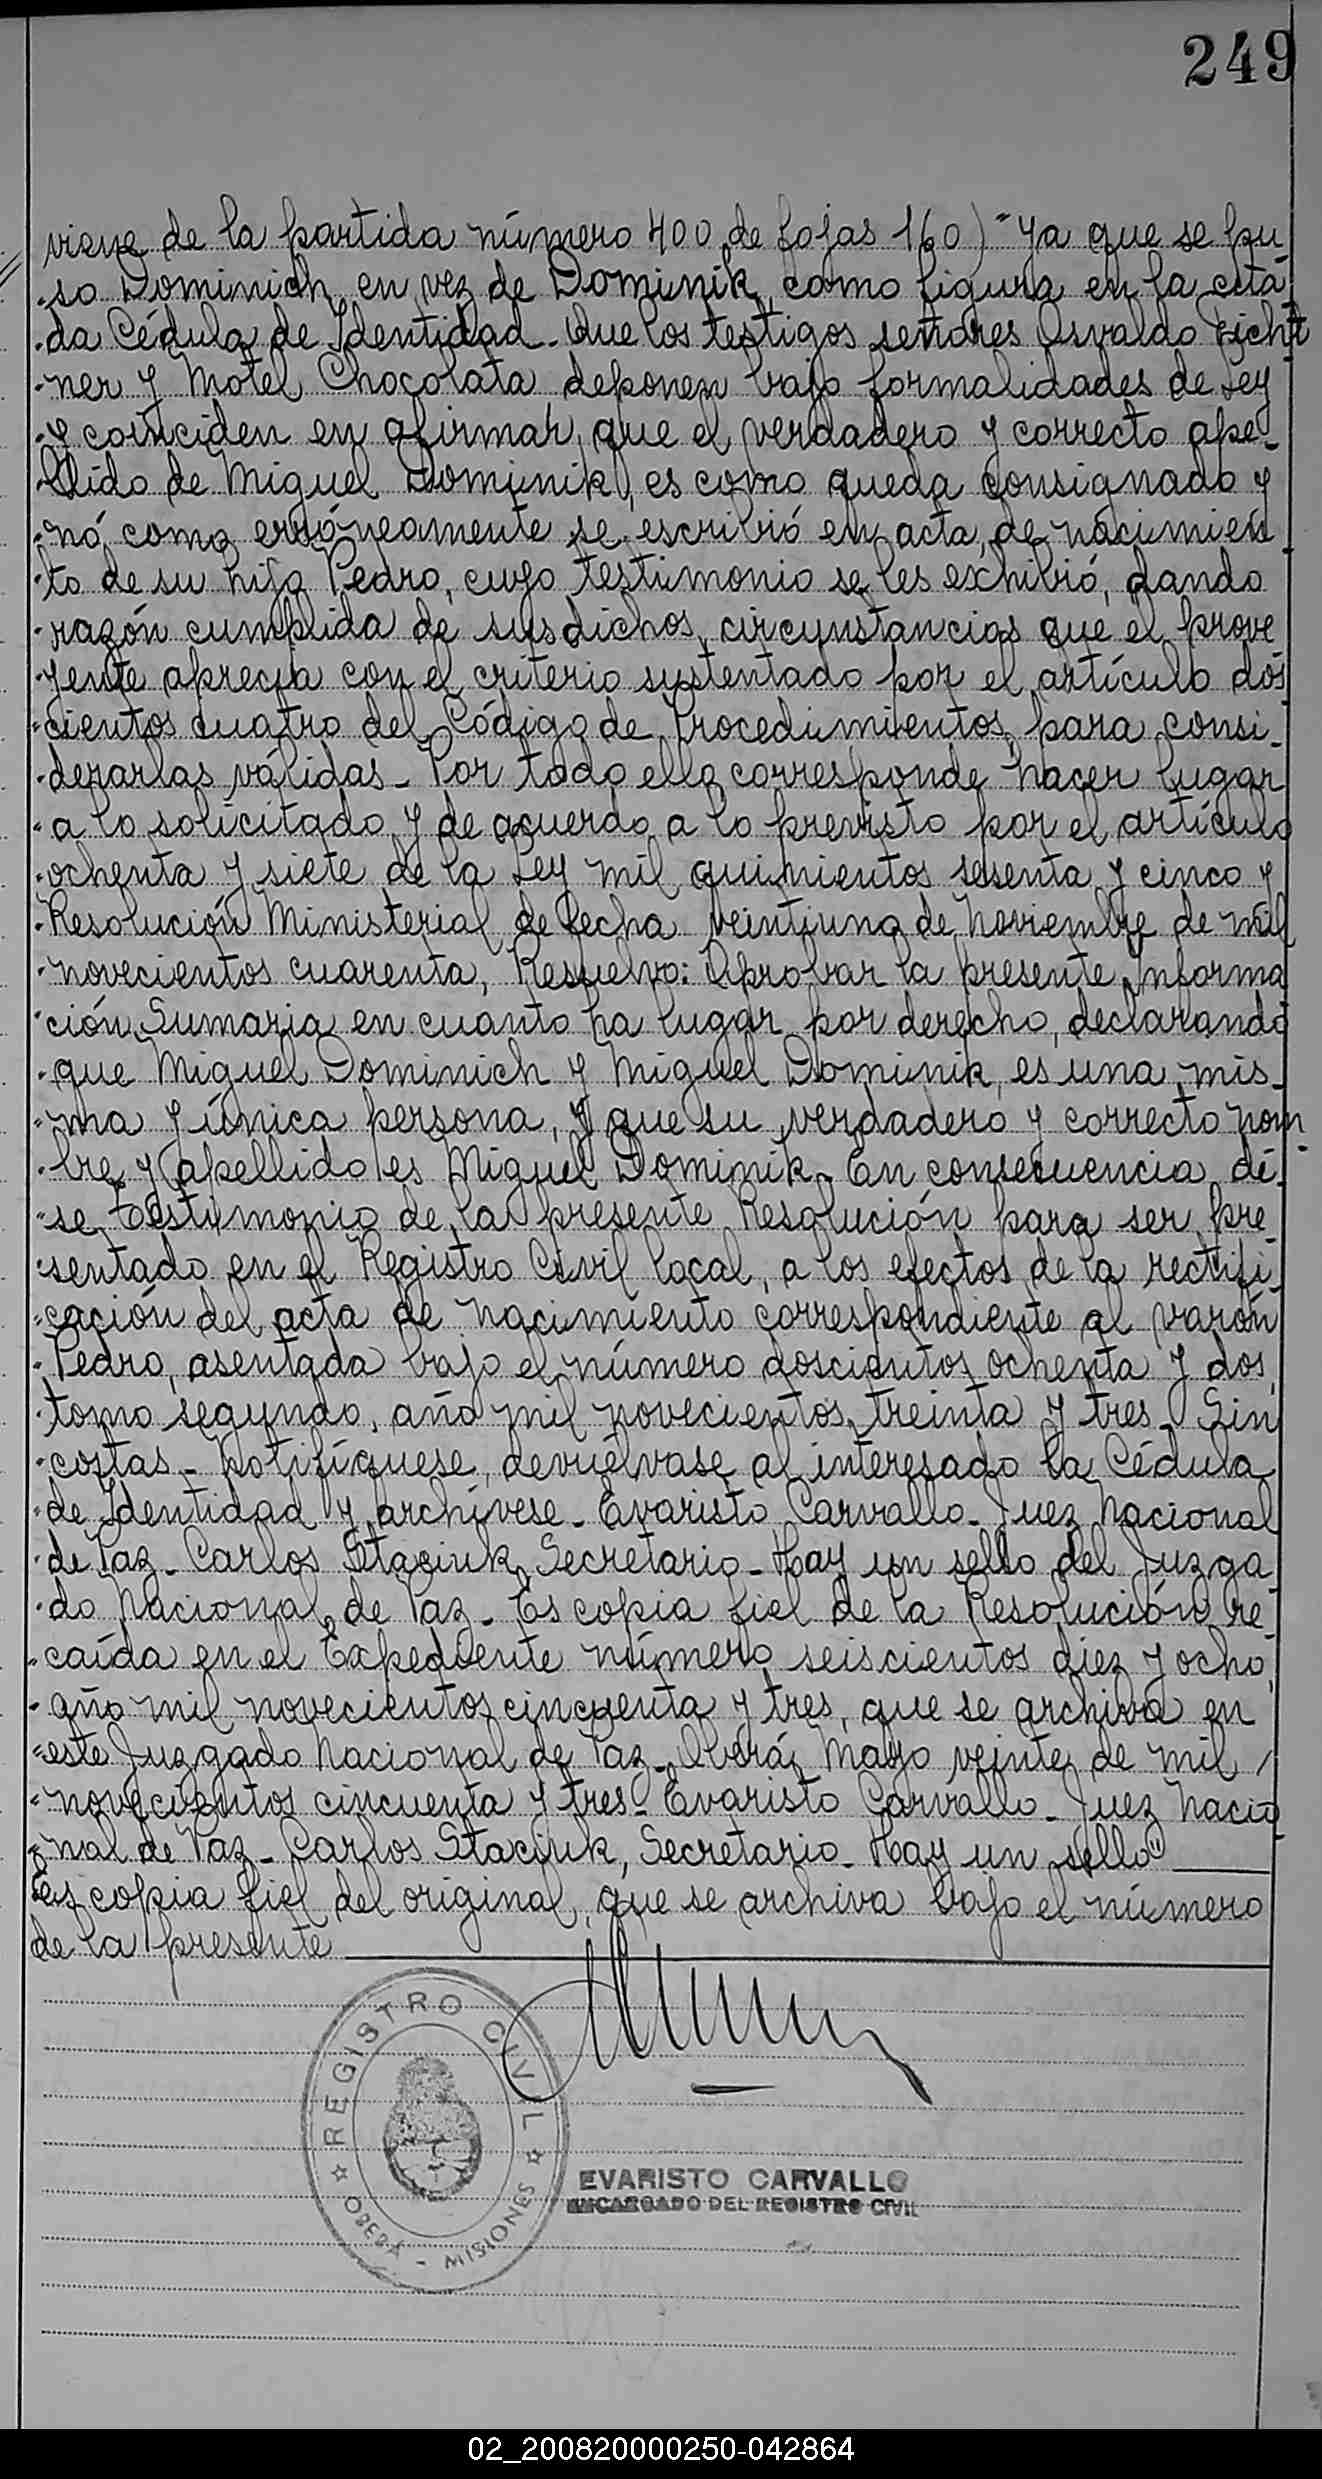 249
viene de la partida número 400 de fojas 160) "ya que se pu
"so Dominich en vez de Dominik, como figura en la cita
"da Cédula de Identidad_ Que los testigos señores Osvaldo
"ner y Motel Chocolata deponen bajo formalidades de Ley
"y coinciden en afirmar, que el verdadero y correcto ape_
"llido de Miguel Dominik, es como queda consignado y
"nó como erróneamente se escribió en acta de nacimien
"to de su hijo Pedro, cuyo testimonio se les exhibió, dando
"razón cumplida de sus dichos, circunstancias que el prove
"yente aprecia con el criterio sustentado por el artículo dos
"cientos cuatro del Código de Procedimientos, para consi_
"derarlas válidas_ Por todo ello corresponde hacer lugar
"a lo solicitado y de acuerdo a lo previsto por el artículo
"ochenta y siete de la Ley mil quinientos sesenta y cinco y
"Resolución Ministerial de fecha veintiuno de Noviembre de mil
"novecientos cuarenta, Resuelvo: Aprobar la presente Informa
"ción Sumaria en cuanto ha lugar por derecho, declarando
"que Miguel Dominich y Miguel Dominik, es una mis_
"ma y única persona, y que su verdadero y correcto nom
"bre y apellido es Miguel Dominik_ En consecuencia, dé_
"se testimonio de la presente Resolución para ser pre_
"sentado en el Registro Civil local, a los efectos de la rectifi_
"cación del acta de nacimiento correspondiente al varón
"Pedro, asentada bajo el número doscientos ochenta y dos,
"tomo segundo, año mil novecientos treinta y tres_ Sin
"costas_ Notifíquese, devuélvase al interesado la Cédula
"de Identidad y archívese_ Evaristo Carvallo_ Juez Nacional
"de Paz_ Carlos Staciuk, Secretario_ Hay un sello del Juzga_
"do Nacional de Paz_ Es copia fiel de la Resolución re_
"caída en el Expediente número seiscientos diez y ocho,
"año mil novecientos cincuenta y tres, que se archiva en
"este Juzgado Nacional de Paz_ Oberá, Mayo veinte de mil
"novecientos cincuenta y tres_ Evaristo Carvallo_ Juez Nacio_
"nal de Paz_ Carlos Staciuk, Secretario_ Hay un sello"
Es copia fiel del original, que se archiva bajo el número
de la presente
REGISTRO CIVIL
OBERÁ - MISIONES
EVARISTO CARVALLO
ENCARGADO DEL REGISTRO CIVIL
02_200820000250-042864